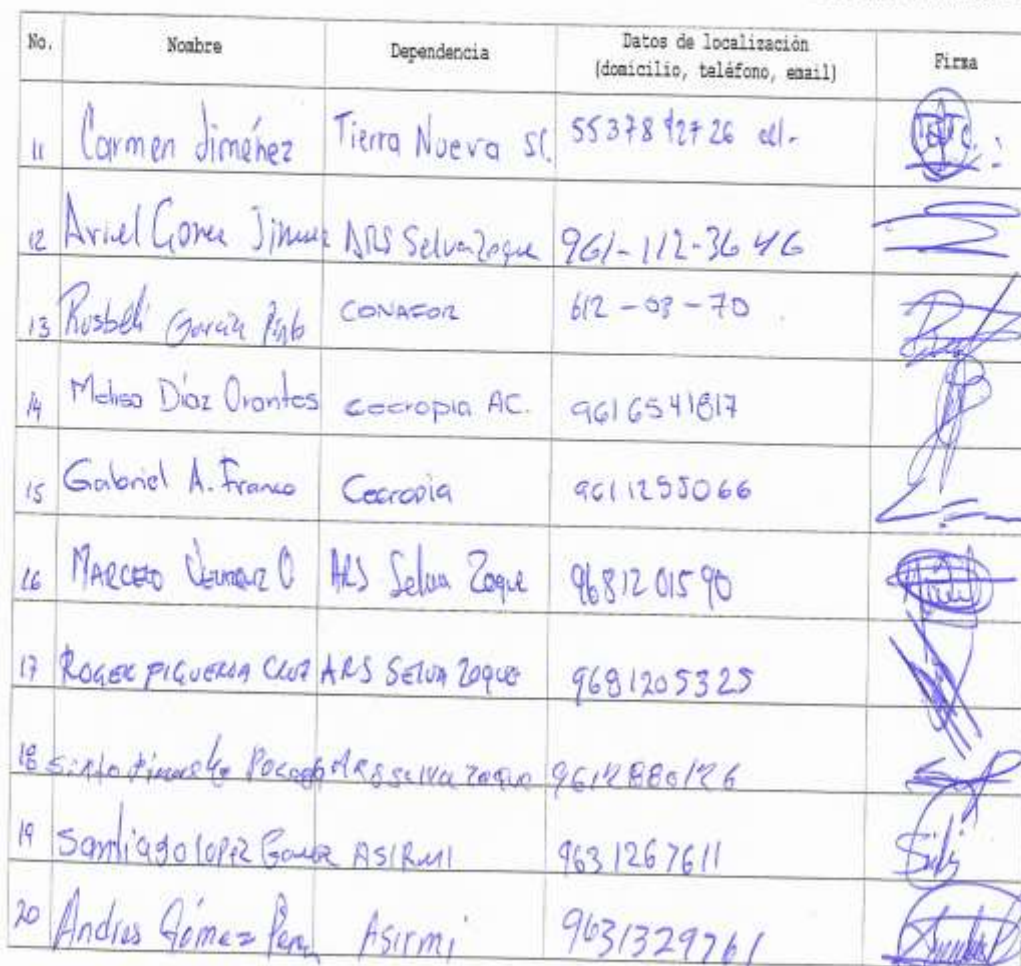 No. Nombre Dependencia Datos de localización Firma
(domicilio, teléfono, email)
11 Carmen Jiménez Tierra Nueva SC. 55378 12726 cel.
12 Ariel Gomez Jimenez ARS Selva Zoque 961-112-36 46
13 Rosbeli García Pinto CONAFOR 612-03-70
14 Melisa Díaz Orantes Cecropia AC. 9616541817
15 Gabriel A. Franco Cecropia 9611255066
16 MARCELO O ARS Selva Zoque 9681201590
17 ROGER FIGUEROA CRUZ ARS SELVA ZOQUE 9681205325
18 Sixto ARS selva zoque 9612880126
19 Santiago lopez Gomez ASIRMI 9631267611
20 Andres Gómez Asirmi 9631329761